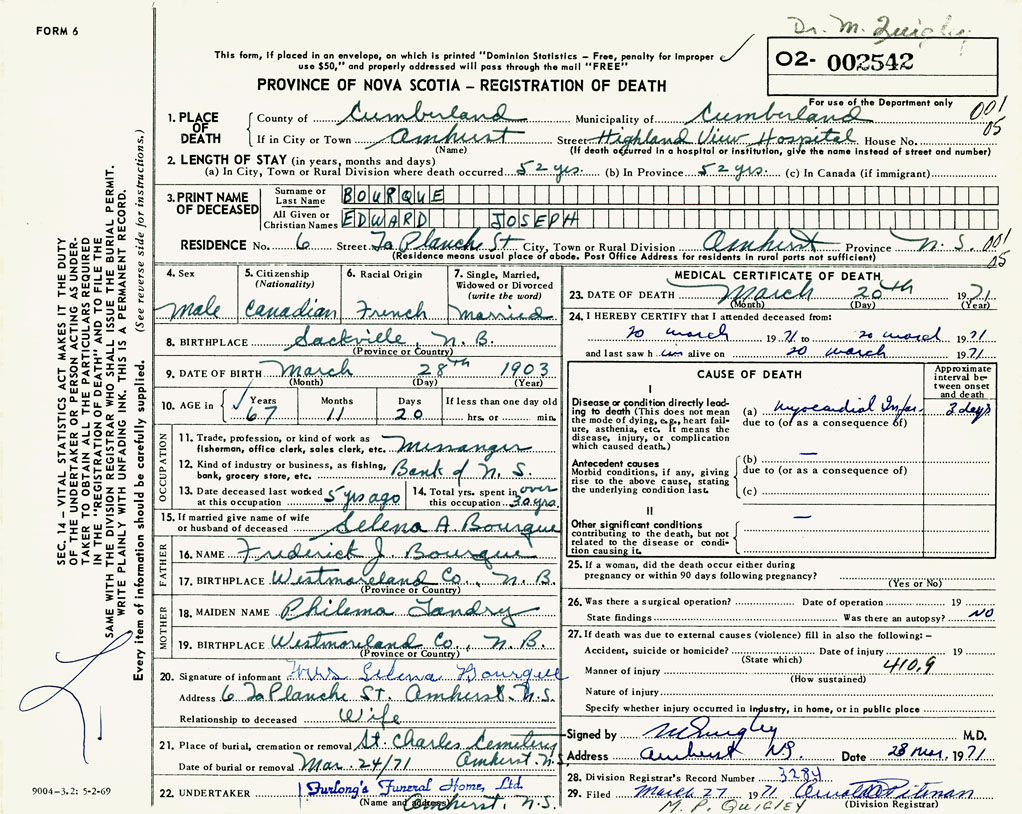 FORM 6
Dr. M. Quigley
This form, if placed in an envelope, on which is printed "Dominion Statistics – Free, penalty for improper
use $50," and properly addressed will pass through the mail "FREE"
O2- 002542
PROVINCE OF NOVA SCOTIA – REGISTRATION OF DEATH
For use of the Department only
1. PLACE OF DEATH County of Cumberland Municipality of Cumberland 001
05
If in City or Town Amherst Street Highland View Hospital House No.
(Name) (If death occurred in a hospital or institution, give the name instead of street and number)
2. LENGTH OF STAY (in years, months and days)
(a) In City, Town or Rural Division where death occurred 52 yrs. (b) In Province 52 yrs. (c) In Canada (if immigrant)
3. PRINT NAME OF DECEASED Surname or Last Name BOURQUE
All Given or Christian Names EDWARD JOSEPH
RESIDENCE No. 6 Street La Planch St City, Town or Rural Division Amherst Province N.S. 001
05
(Residence means usual place of abode. Post Office Address for residents in rural ports not sufficient)
4. Sex 5. Citizenship (Nationality) 6. Racial Origin 7. Single, Married, Widowed or Divorced (write the word)
Male Canadian French Married
8. BIRTHPLACE Sackville, N.B.
(Province or Country)
9. DATE OF BIRTH March 28th 1903
(Month) (Day) (Year)
10. AGE in Years Months Days If less than one day old
67 11 20 hrs. or min.
OCCUPATION
11. Trade, profession, or kind of work as fisherman, office clerk, sales clerk, etc. Messanger
12. Kind of industry or business, as fishing, bank, grocery store, etc. Bank of N.S.
13. Date deceased last worked at this occupation 5 yrs ago 14. Total yrs. spent in this occupation over 30 yrs.
15. If married give name of wife or husband of deceased Selena A Bourque
FATHER
16. NAME Frederick J. Bourque
17. BIRTHPLACE Westmoreland Co., N.B.
(Province or Country)
MOTHER
18. MAIDEN NAME Philema Landry
19. BIRTHPLACE Westmoreland Co., N.B.
(Province or Country)
20. Signature of informant Mrs Selena Bourque
Address 6 La Planche St. Amherst. N.S.
Relationship to deceased Wife
21. Place of burial, cremation or removal St. Charles Cemetery
Date of burial or removal Mar. 24/71 Amherst. N.S
22. UNDERTAKER Furlong's Funeral Home, Ltd.
(Name and address) Amherst, N.S.
MEDICAL CERTIFICATE OF DEATH
23. DATE OF DEATH March 20th 1971
(Month) (Day) (Year)
24. I HEREBY CERTIFY that I attended deceased from:
20 March 1971 to 20 March 1971
and last saw him alive on 20 March 1971
CAUSE OF DEATH Approximate interval between onset and death
I
Disease or condition directly leading to death (This does not mean the mode of dying, e.g., heart failure, asthenia, etc. It means the disease, injury, or complication which caused death.)
(a) Myocardial Infar. 3 days
due to (or as a consequence of)
Antecedent causes
Morbid conditions, if any, giving rise to the above cause, stating the underlying condition last.
(b) —
due to (or as a consequence of)
(c)
II
Other significant conditions contributing to the death, but not related to the disease or condition causing it. —
25. If a woman, did the death occur either during
pregnancy or within 90 days following pregnancy?
(Yes or No)
26. Was there a surgical operation? Date of operation 19
State findings Was there an autopsy? NO
27. If death was due to external causes (violence) fill in also the following: –
Accident, suicide or homicide? Date of injury 19
(State which)
Manner of injury 410.9
(How sustained)
Nature of injury
Specify whether injury occurred in industry, in home, or in public place
Signed by M Quigley M.D.
Address Amherst NS Date 23 Mar. 1971
28. Division Registrar's Record Number 3284
29. Filed March 27 1971
(Division Registrar)
M. P. QUIGLEY
SEC. 14 – VITAL STATISTICS ACT MAKES IT THE DUTY
OF THE UNDERTAKER OR PERSON ACTING AS UNDER-
TAKER TO OBTAIN ALL THE PARTICULARS REQUIRED
IN THE "REGISTRATION OF DEATH" AND TO FILE THE
SAME WITH THE DIVISION REGISTRAR WHO SHALL ISSUE THE BURIAL PERMIT.
WRITE PLAINLY WITH UNFADING INK. THIS IS A PERMANENT RECORD.
Every item of information should be carefully supplied. (See reverse side for instructions.)
9004-3.2: 5-2-69